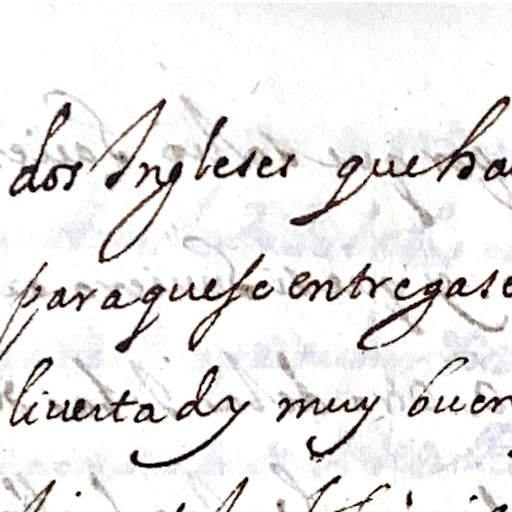 dos Ingleses que ha
para que se entregase
livertad y muy buen